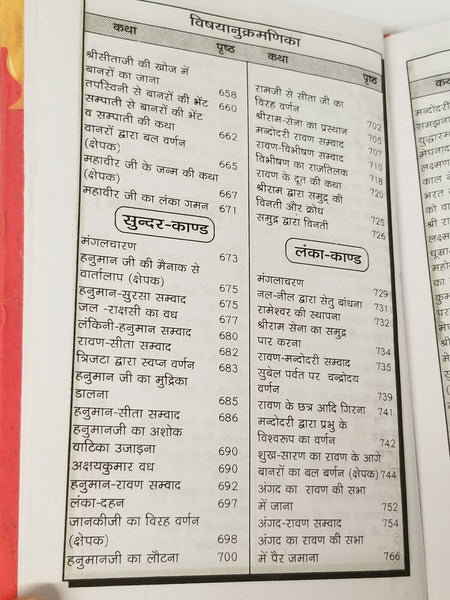 विषयानुक्रमणिका
कथा पृष्ठ
श्रीसीताजी की खोज में
बानरों का जाना 658
तपस्विनी से बानरों की भेंट 660
सम्पाती से बानरों की भेंट
व सम्पाती की कथा 662
वानरों द्वारा बल वर्णन
(क्षेपक) 665
महावीर जी के जन्म की कथा
(क्षेपक) 667
महावीर जी का लंका गमन 671
सुन्दर-काण्ड
मंगलाचारण 673
हनुमान जी की मैनाक से
वार्तालाप (क्षेपक) 675
हनुमान-सुरसा सम्वाद 675
जल - राक्षसी का वध 677
लंकिनी-हनुमान सम्वाद 680
रावण-सीता सम्वाद 682
त्रिजटा द्वारा स्वप्न वर्णन 683
हनुमान जी का मुद्रिका
डालना 685
हनुमान-सीता सम्वाद 686
हनुमानजी का अशोक
वाटिका उजाड़ना 690
अक्षयकुमार वध 690
हनुमान-रावण सम्वाद 692
लंका-दहन 697
जानकीजी का विरह वर्णन
(क्षेपक) 698
हनुमानजी का लौटना 700
कथा पृष्ठ
रामजी से सीता जी का
विरह वर्णन 702
श्रीराम-सेना का प्रस्थान 705
मन्दोदरी रावण सम्वाद 707
रावण-विभीषण सम्वाद 710
विभीषण का राजतिलक 718
रावण के दूत की कथा 720
श्रीराम द्वारा समुद्र की
विनती और क्रोध 725
समुद्र द्वारा विनती 726
लंका-काण्ड
मंगलाचारण 729
नल-नील द्वारा सेतु बांधना 731
रामेश्वर की स्थापना 732
श्रीराम सेना का समुद्र
पार करना 734
रावण-मन्दोदरी सम्वाद 735
सुबेल पर्वत पर चन्द्रोदय
वर्णन 739
रावण के छत्र आदि गिरना 741
मन्दोदरी द्वारा प्रभु के
विश्वरूप का वर्णन 742
शुख-सारण का रावण के आगे
बानरों का बल बर्णन (क्षेपक) 744
अंगद का रावण की सभा
में जाना 752
अंगद-रावण सम्वाद 754
अंगद का रावण की सभा
में पैर जमाना 766
मन्दोदरी
समझना
युद्धारम
मेघनाद
लक्ष्मण